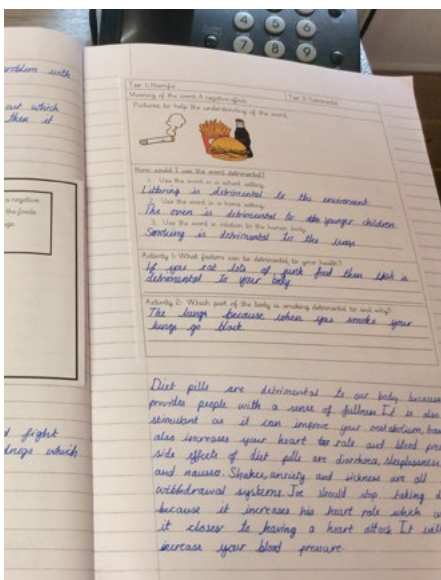 4 5 6
7 8 9
problem with
out which
then it
a negative
the foods
d fight
drugs which
Tier 1: Harmful
Tier 2: Detrimental
Meaning of the word: A negative effect.
Pictures to help the understanding of the word.
How could I use the word detrimental?
1. Use the word in a school setting.
Littering is detrimental to the enviroment.
2. Use the word in a home setting.
The oven is detrimental to younger children.
3. Use the word in relation to the human body.
Smoking is detrimental to the lungs
Activity 1: What factors can be detrimental to your health?
If you eat lots of junk food then that is
detrimental to your body.
Activity 2: Which part of the body is smoking detrimental to and why?
The lungs because when you smoke your
lungs go black.
Diet pills are detrimental to our body because
provides people with a sense of fullness. It is also
stimulant as it can improve your metabolism, but
also increases your heart rate and blood pre
side effects of diet pills are diarrhoea, sleeplessness
and nausea. Shakes, anxiety and sickness are all
withdrawal systems. Joe should stop taking d
because it increases his heart rate which
it closer to having a heart attack. It will
increase your blood pressure.